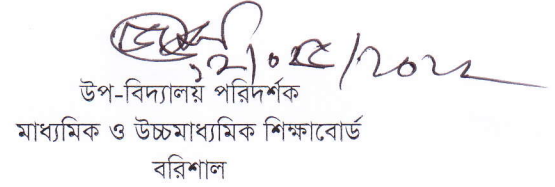 ১২/০৫/২০২২
উপ-বিদ্যালয় পরিদর্শক
মাধ্যমিক ও উচ্চমাধ্যমিক শিক্ষাবোর্ড
বরিশাল